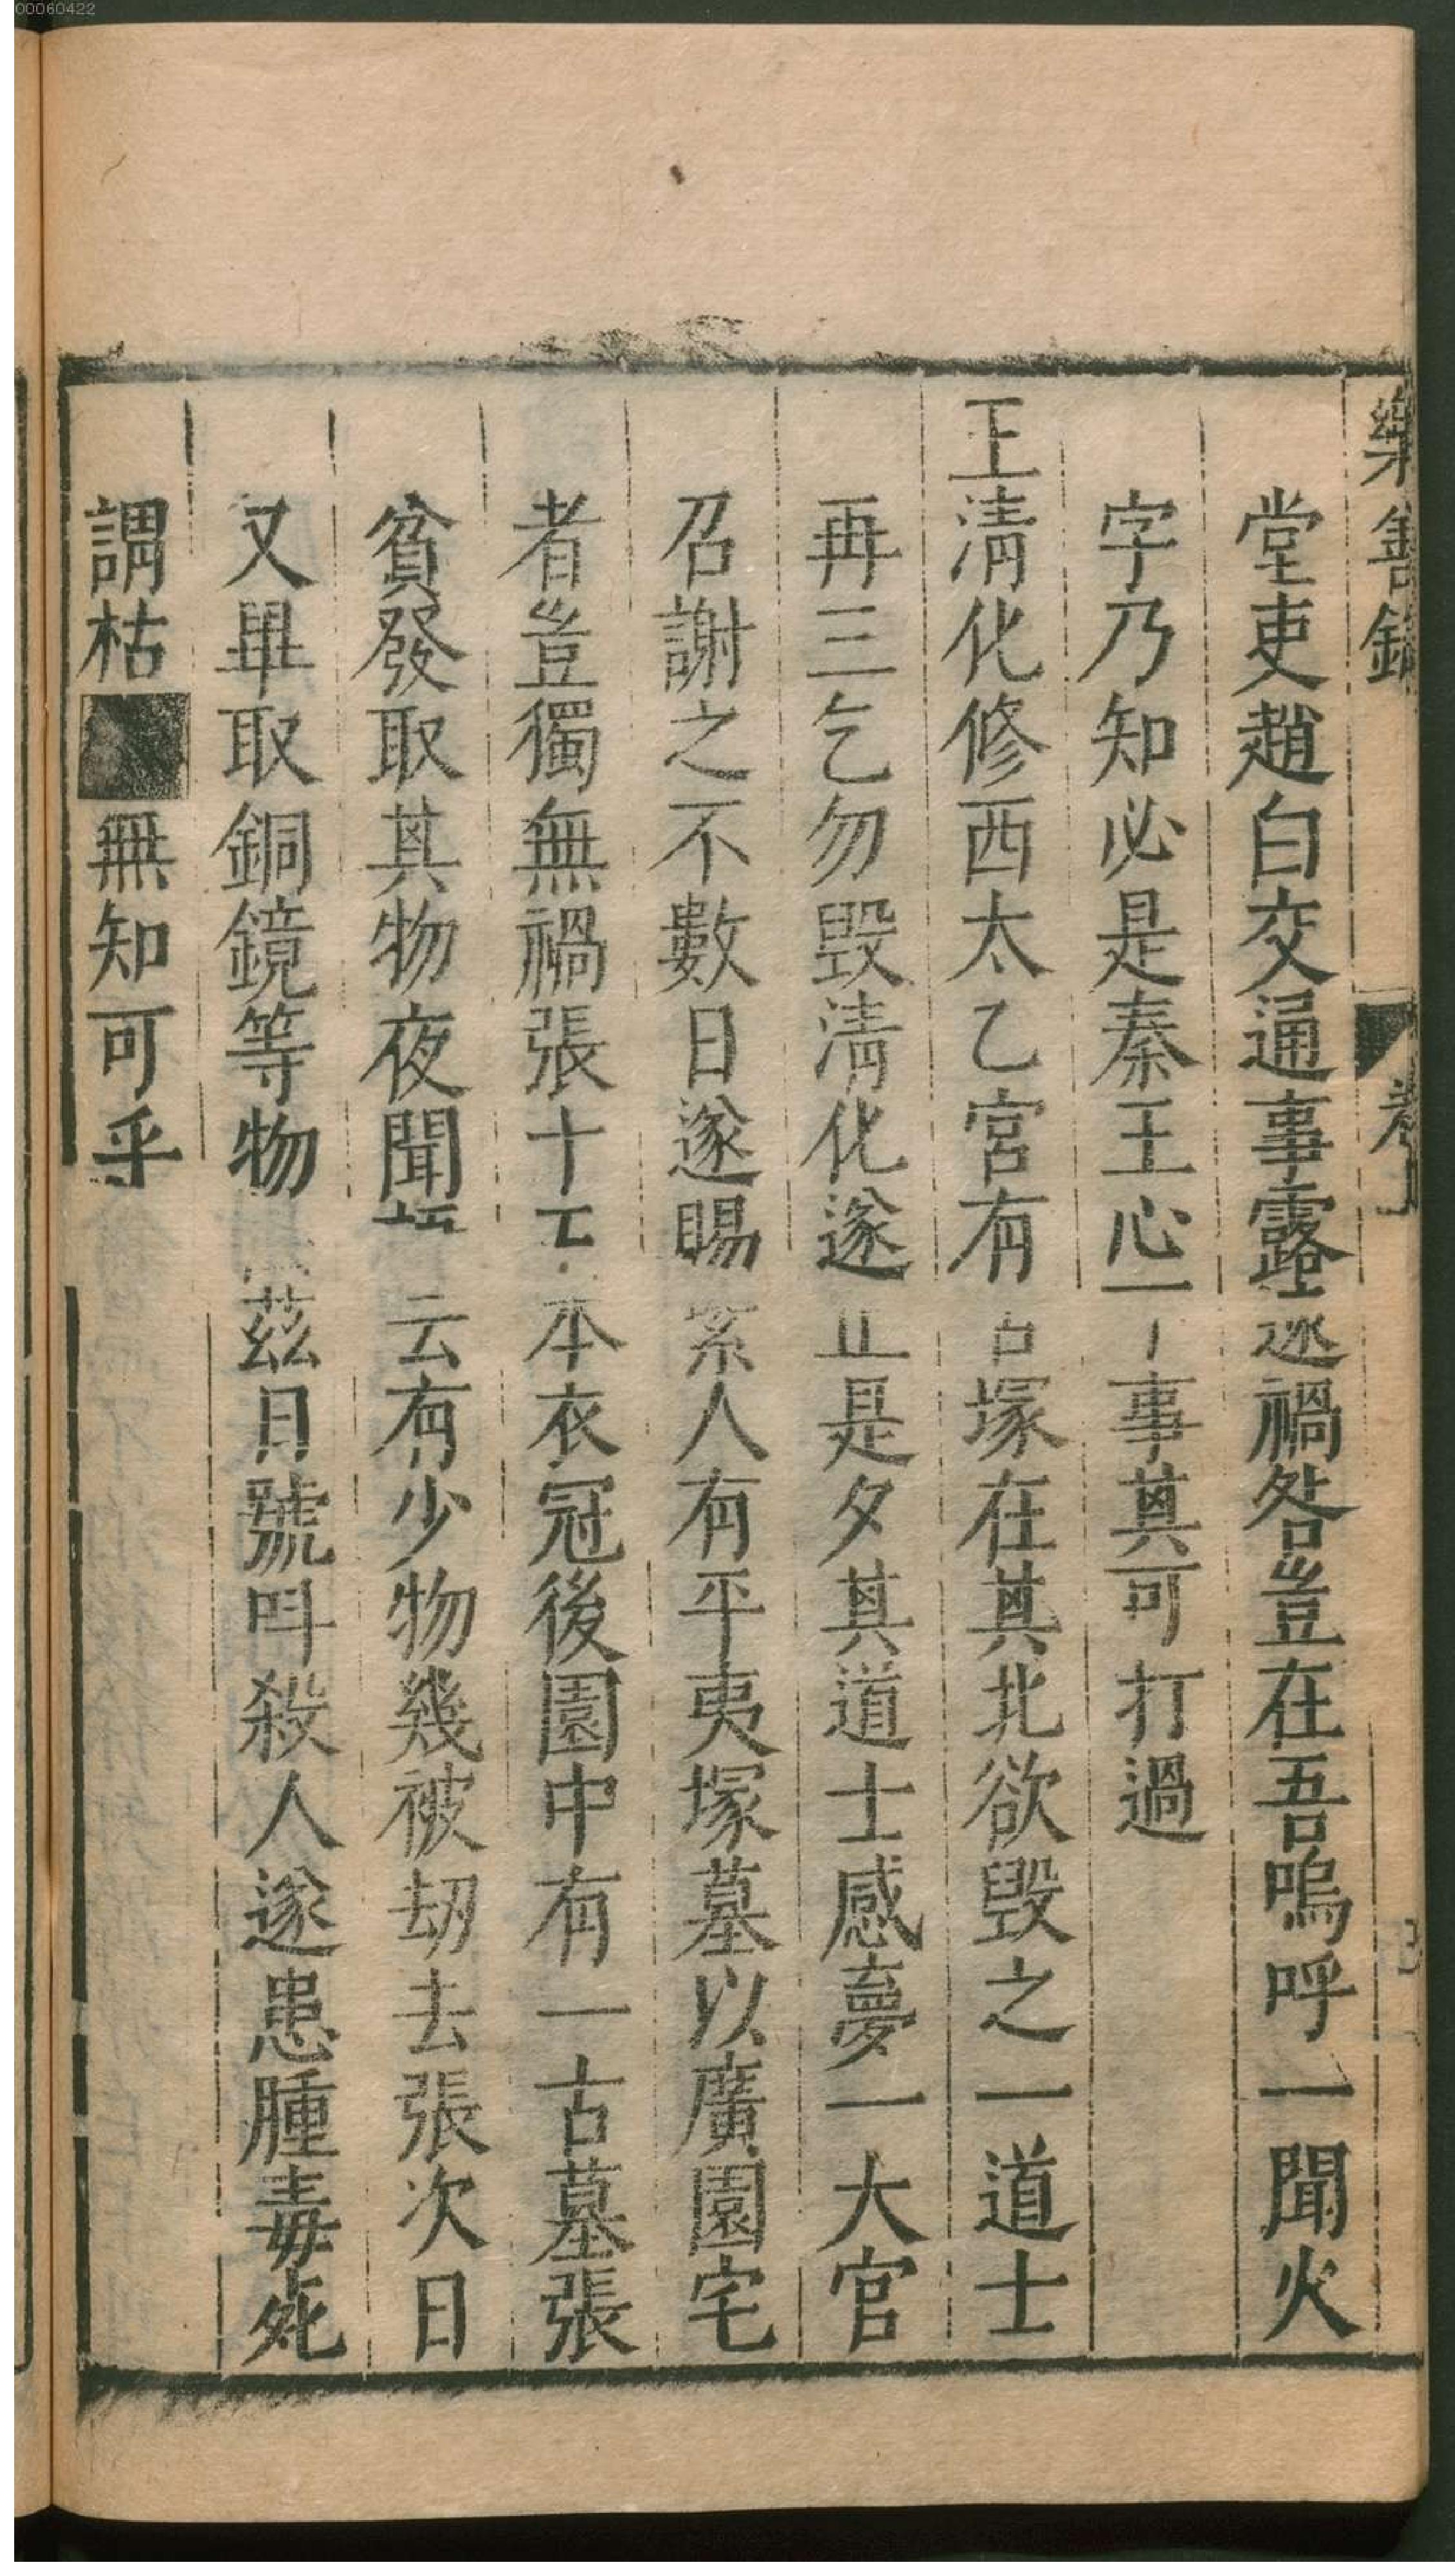 00060422
樂善錄 卷
堂吏趙白交通事露逐禍咎豈在吾嗚呼一聞火
字乃知必是秦王心一事真可打過
王淸化修西太乙宮有古塚在其北欲毀之一道士
再三乞勿毀淸化遂止是夕其道士感夢一大官
召謝之不數日遂賜紫人有平夷塚墓以廣園宅
者豈獨無禍張十五本衣冠後園中有一古墓張
貧發取其物夜聞云有少物幾被劫去張次日
又畢取銅鏡等物茲日號叫殺人遂患腫毒死
謂枯無知可乎